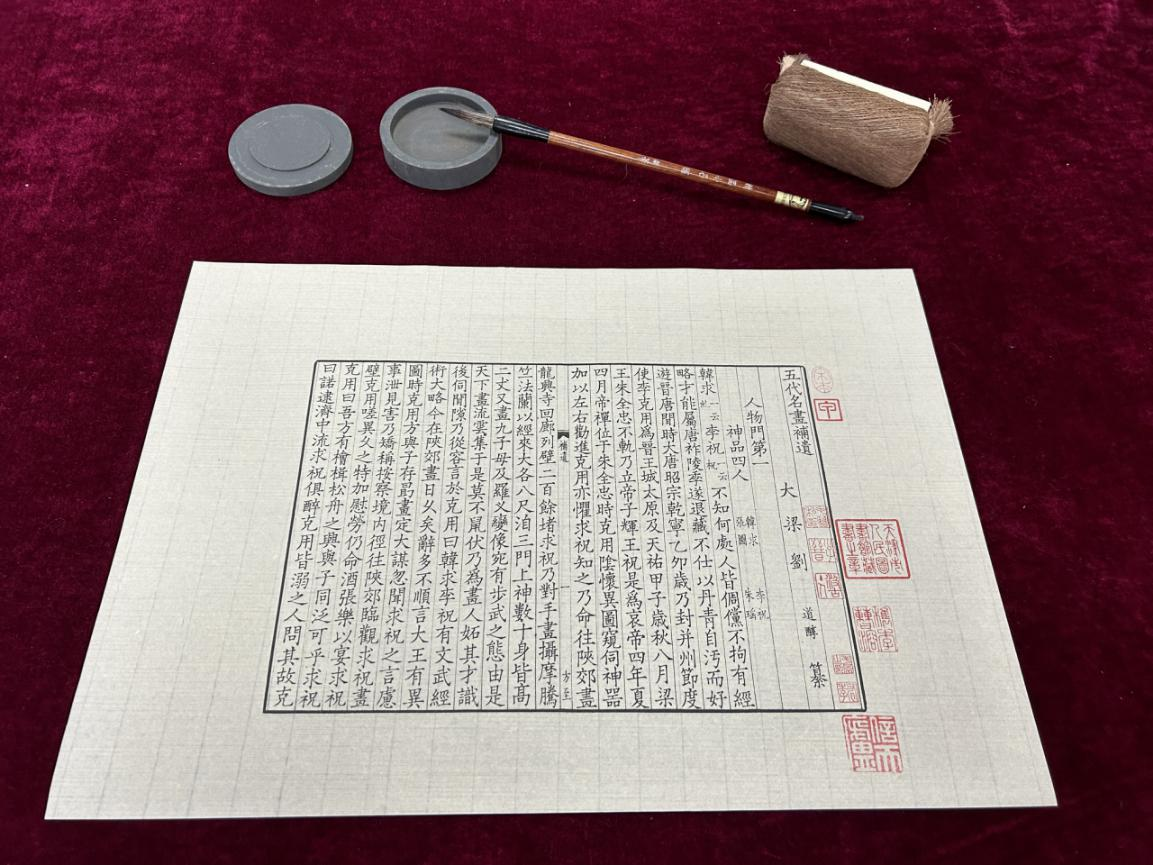 五代名畫補遺
大梁劉道醇纂
人物門第一
神品四人 韓求 李祝 張圖 朱瑤
韓求一云虬李祝一云柷不知何處人皆倜儻不拘有經
略才能屬唐祚陵季遂退藏不仕以丹青自汚而好
遊晉唐間時大唐昭宗乾寧乙卯歲乃封并州節度
使李克用爲晉王城太原及天祐甲子歲秋八月梁
王朱全忠不軌乃立帝子輝王祝是爲哀帝四年夏
四月帝禪位于朱全忠時克用陰懷異圖窺伺神器
加以左右勸進克用亦懼求祝知之乃命往陝郊畫
補遺 一 方至
龍興寺回廊列壁二百餘堵求祝乃對手畫攝摩騰
竺法蘭以經來大各八尺洎三門上神數十身皆高
二丈又畫九子母及羅叉變像宛有步武之態由是
天下畫流雲集于是莫不鼠伏乃為畫人妬其才識
後伺閒隙乃從容言於克用曰韓求李祝有文武經
術大略今在陝郊畫日久矣辭多不順言大王有異
圖時克用方與子存勗畫定大謀忽聞求祝之言慮
事泄見害乃矯稱按察境内徑往陝郊臨觀求祝畫
壁克用嗟異久之特加慰勞仍命酒張樂以宴求祝
克用曰吾方有檜楫松舟之興與子同泛可乎求祝
曰諾逮濟中流求祝俱醉克用皆溺之人問其故克
天津市人民圖書館藏書之章